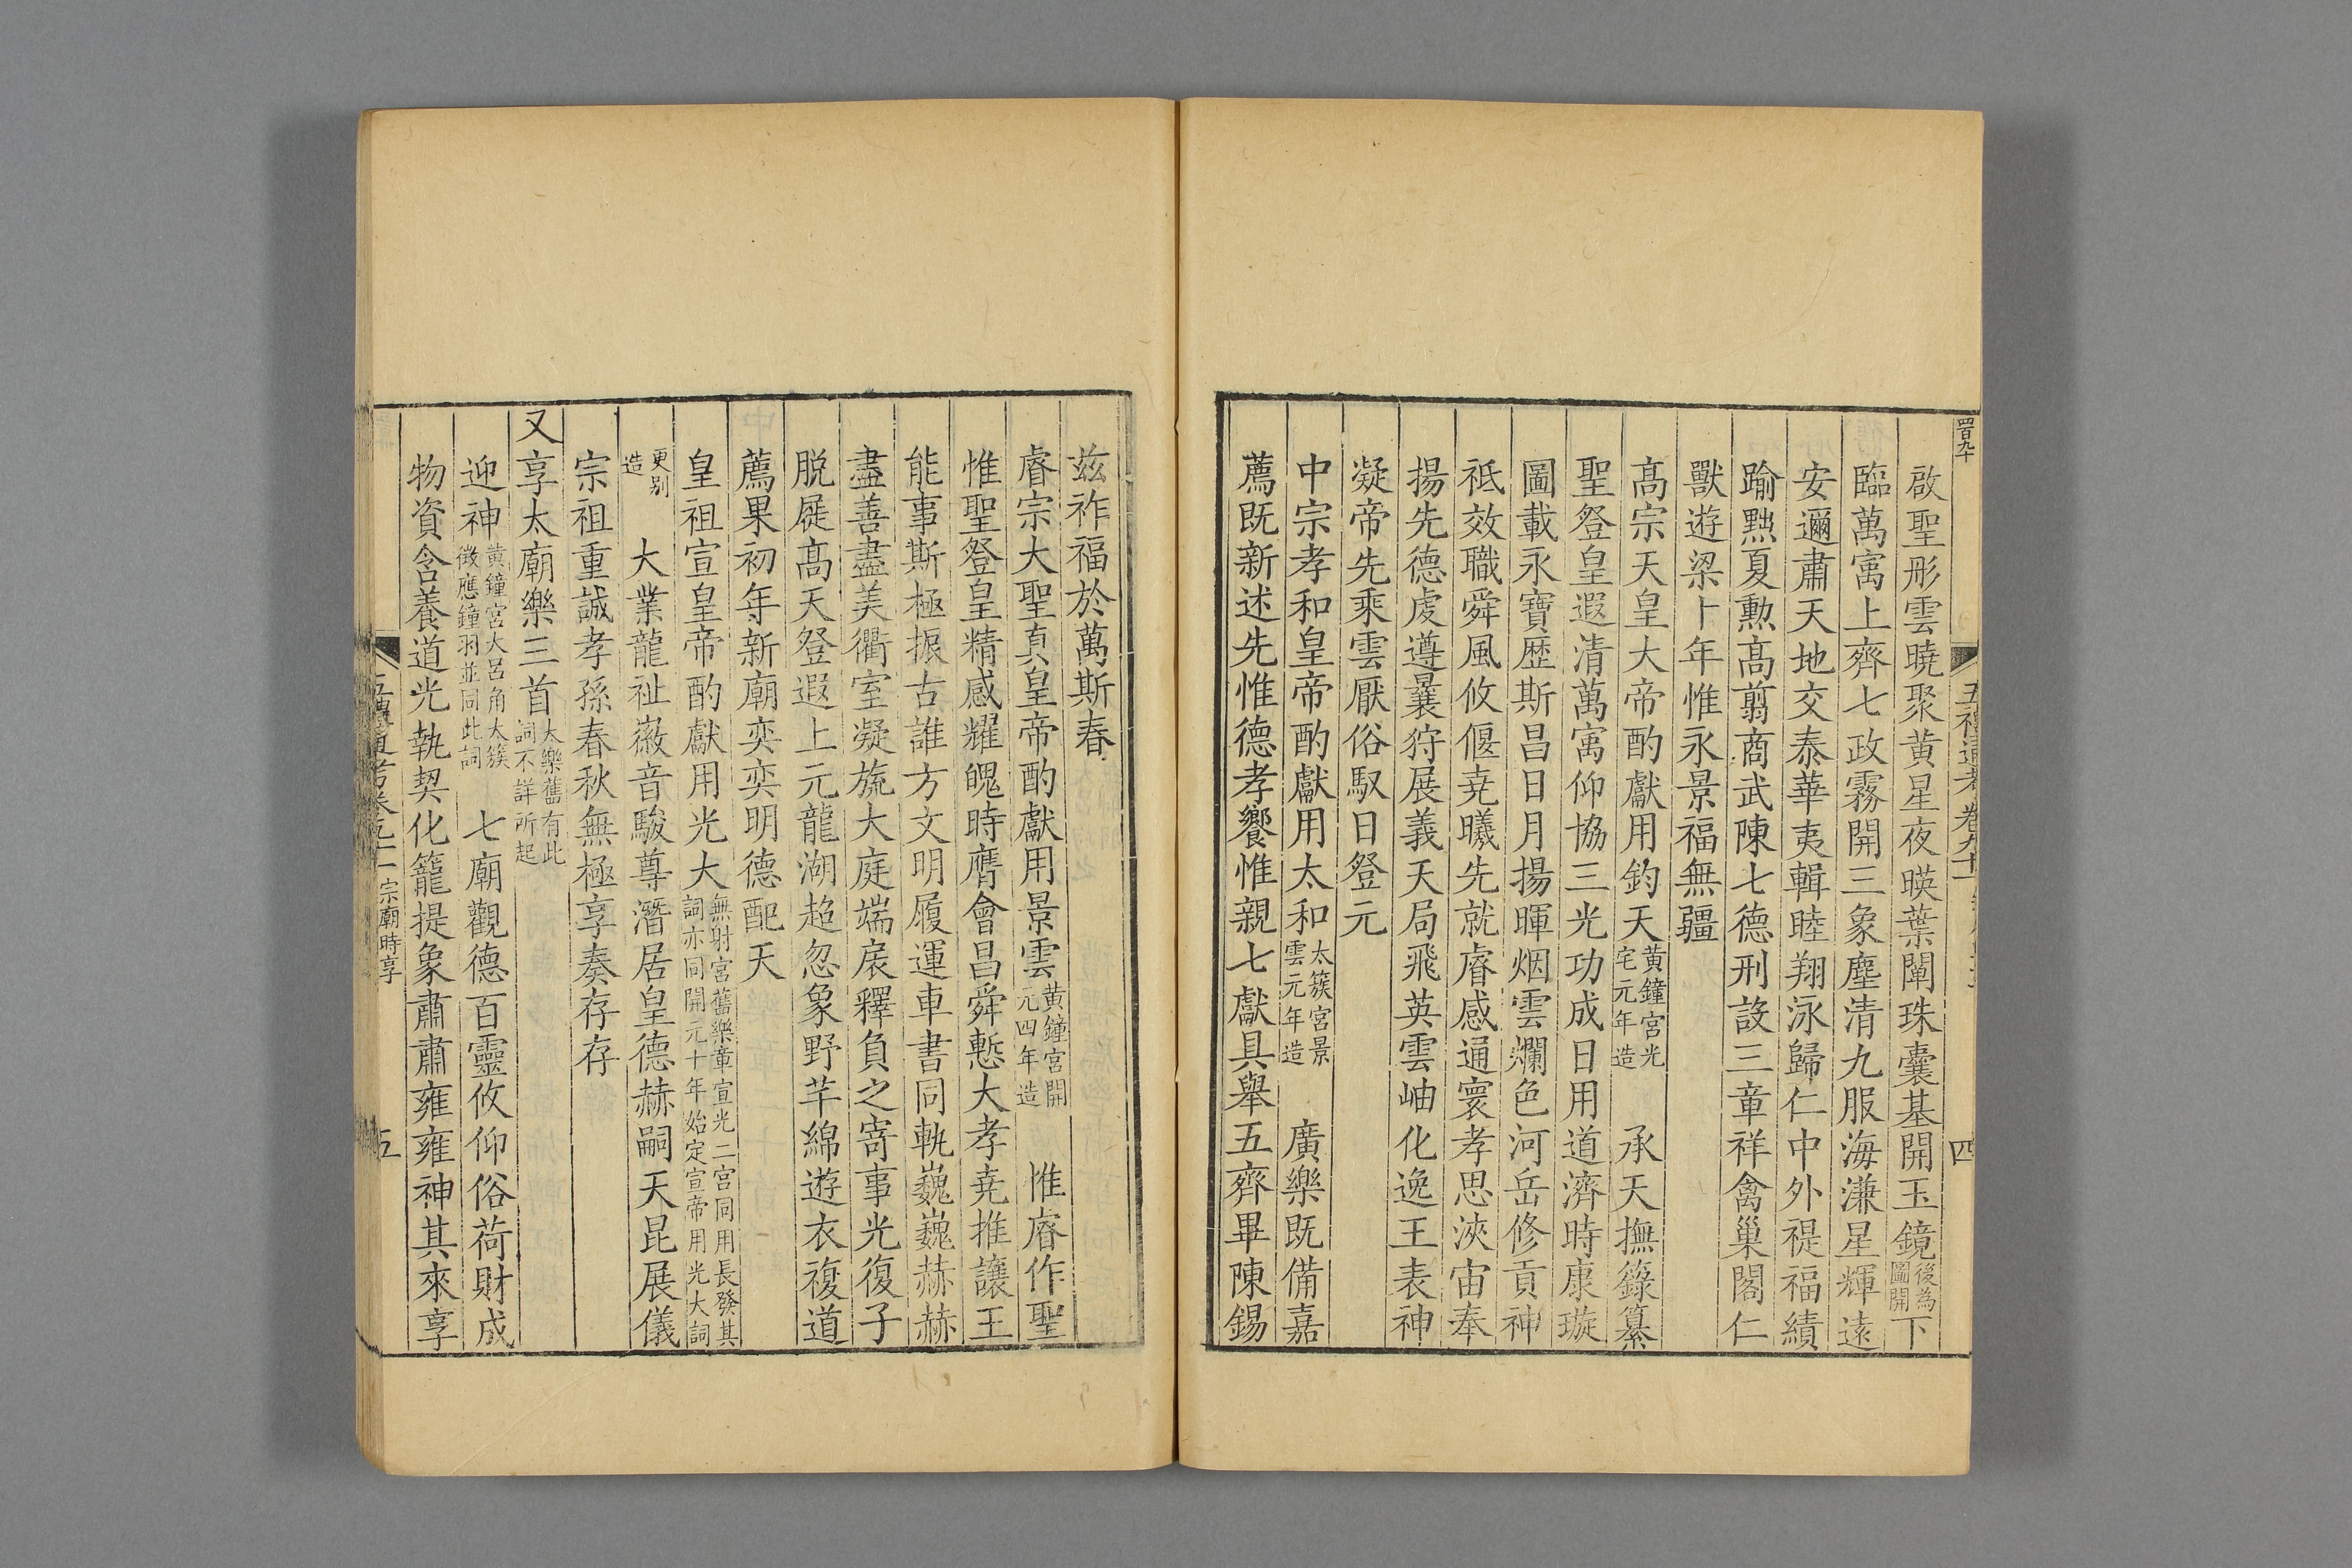 四百九十
五禮通考 卷九十一
四
啟聖彤雲曉聚黃星夜暎葉闡珠囊基開玉鏡後為圖開下
臨萬㝢上齊七政霧開三象塵清九服海濂星輝遠
安邇肅天地交泰華夷輯睦翔泳歸仁中外禔福績
踰黙夏勲髙翦商武陳七德刑設三章祥禽巢閣仁
獸遊梁卜年惟永景福無疆
髙宗天皇大帝酌獻用鈞天黃鐘宮光宅元年造 承天撫籙纂
聖登皇遐清萬㝢仰協三光功成日用道濟時康璇
圖載永寶歴斯昌日月揚暉烟雲爛色河岳修貢神
祗效職舜風攸偃堯曦先就睿感通寰孝思浹宙奉
揚先德虔遵曩狩展義天局飛英雲岫化逸王表神
凝帝先乘雲厭俗馭日登元
中宗孝和皇帝酌獻用太和太簇宮景雲元年造 廣樂既備嘉
薦既新述先惟德孝饗惟親七獻具舉五齊畢陳錫
茲祚福於萬斯春
睿宗大聖真皇帝酌獻用景雲黃鐘宮開元四年造 惟睿作聖
惟聖登皇精感耀魄時膺會昌舜慙大孝堯推讓王
能事斯極振古誰方文明履運車書同軌巍巍赫赫
盡善盡美衢室凝旒大庭端扆釋負之寄事光復子
脱屣髙天登遐上元龍湖超忽象野芊綿遊衣複道
薦果初年新廟奕奕明德配天
皇祖宣皇帝酌獻用光大無射宮舊樂章宣光二宮同用長發其詞亦同開元十年始定宣帝用光大詞
更别造 大業龍祉徽音駿尊潛居皇德赫嗣天昆展儀
宗祖重誠孝孫春秋無極享奏存存
又享太廟樂三首大樂舊有此詞不詳所起
迎神黃鐘宮大呂角太簇徵應鐘羽並同此詞 七廟觀德百靈攸仰俗荷財成
物資含養道光執契化籠提象肅肅雍雍神其來享
五禮通考卷九十一 宗廟時享
五